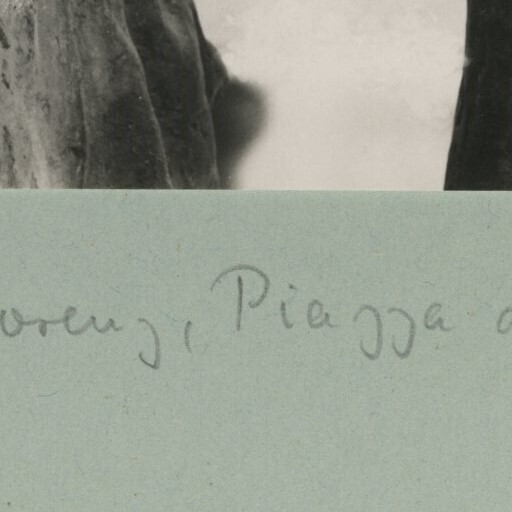 orenz, Piazza d